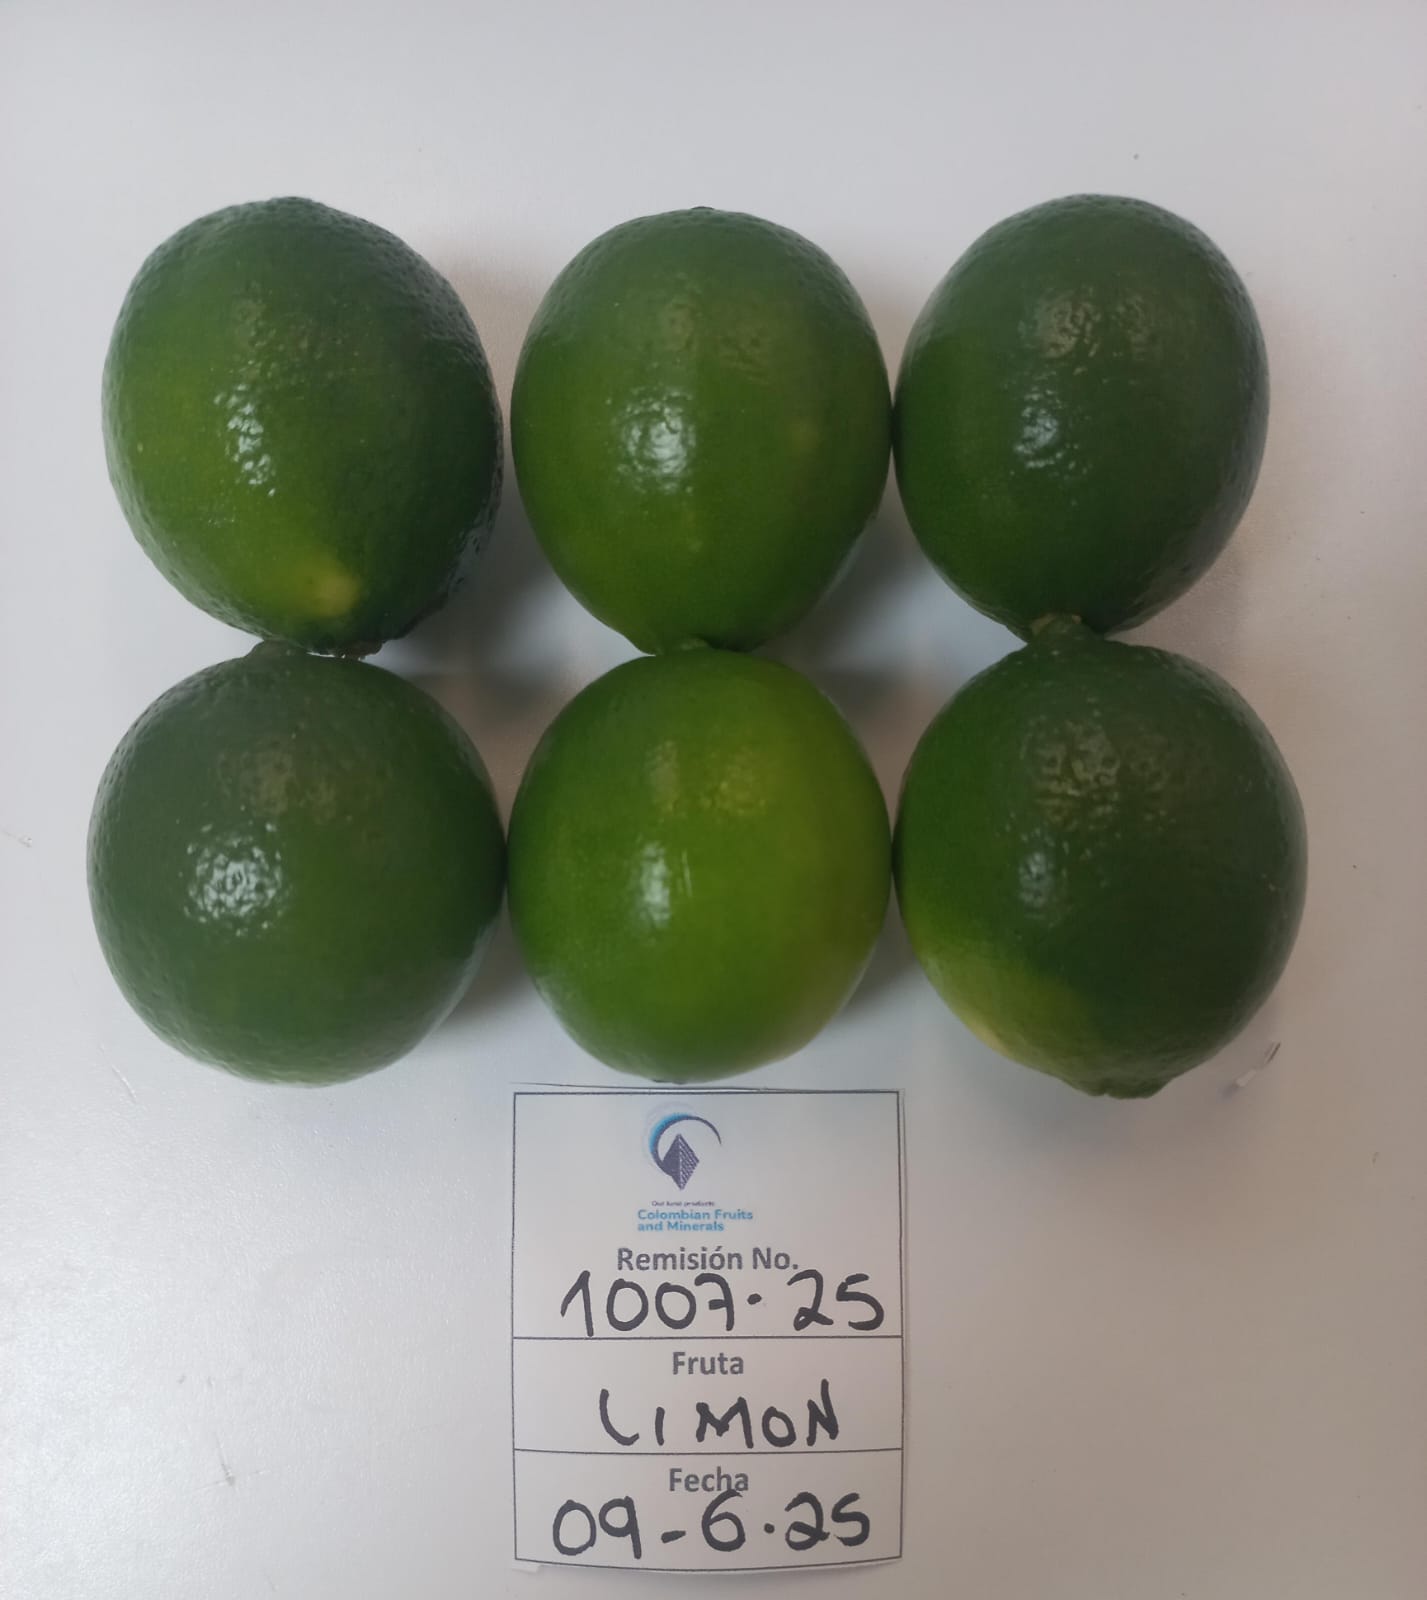 Our best products
Colombian Fruits
and Minerals
Remisión No.
1007-25
Fruta
LIMON
Fecha
09-6-25